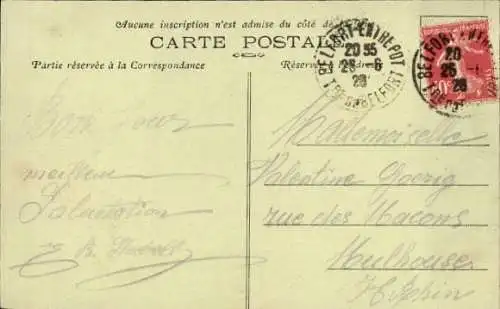 Aucune inscription n'est admise du côté de
CARTE POSTALE
Partie réservée à la Correspondance
Réservé
BELFORT-ENTREPOT
20 35
26-6
28
TRE DE BELFORT
BELFORT-ENTRE
20
26
28
Bons
meilleur
Salutation
Mademoiselle
Valentine Goerig
rue des Macons
Mulhouse
H. Rhin